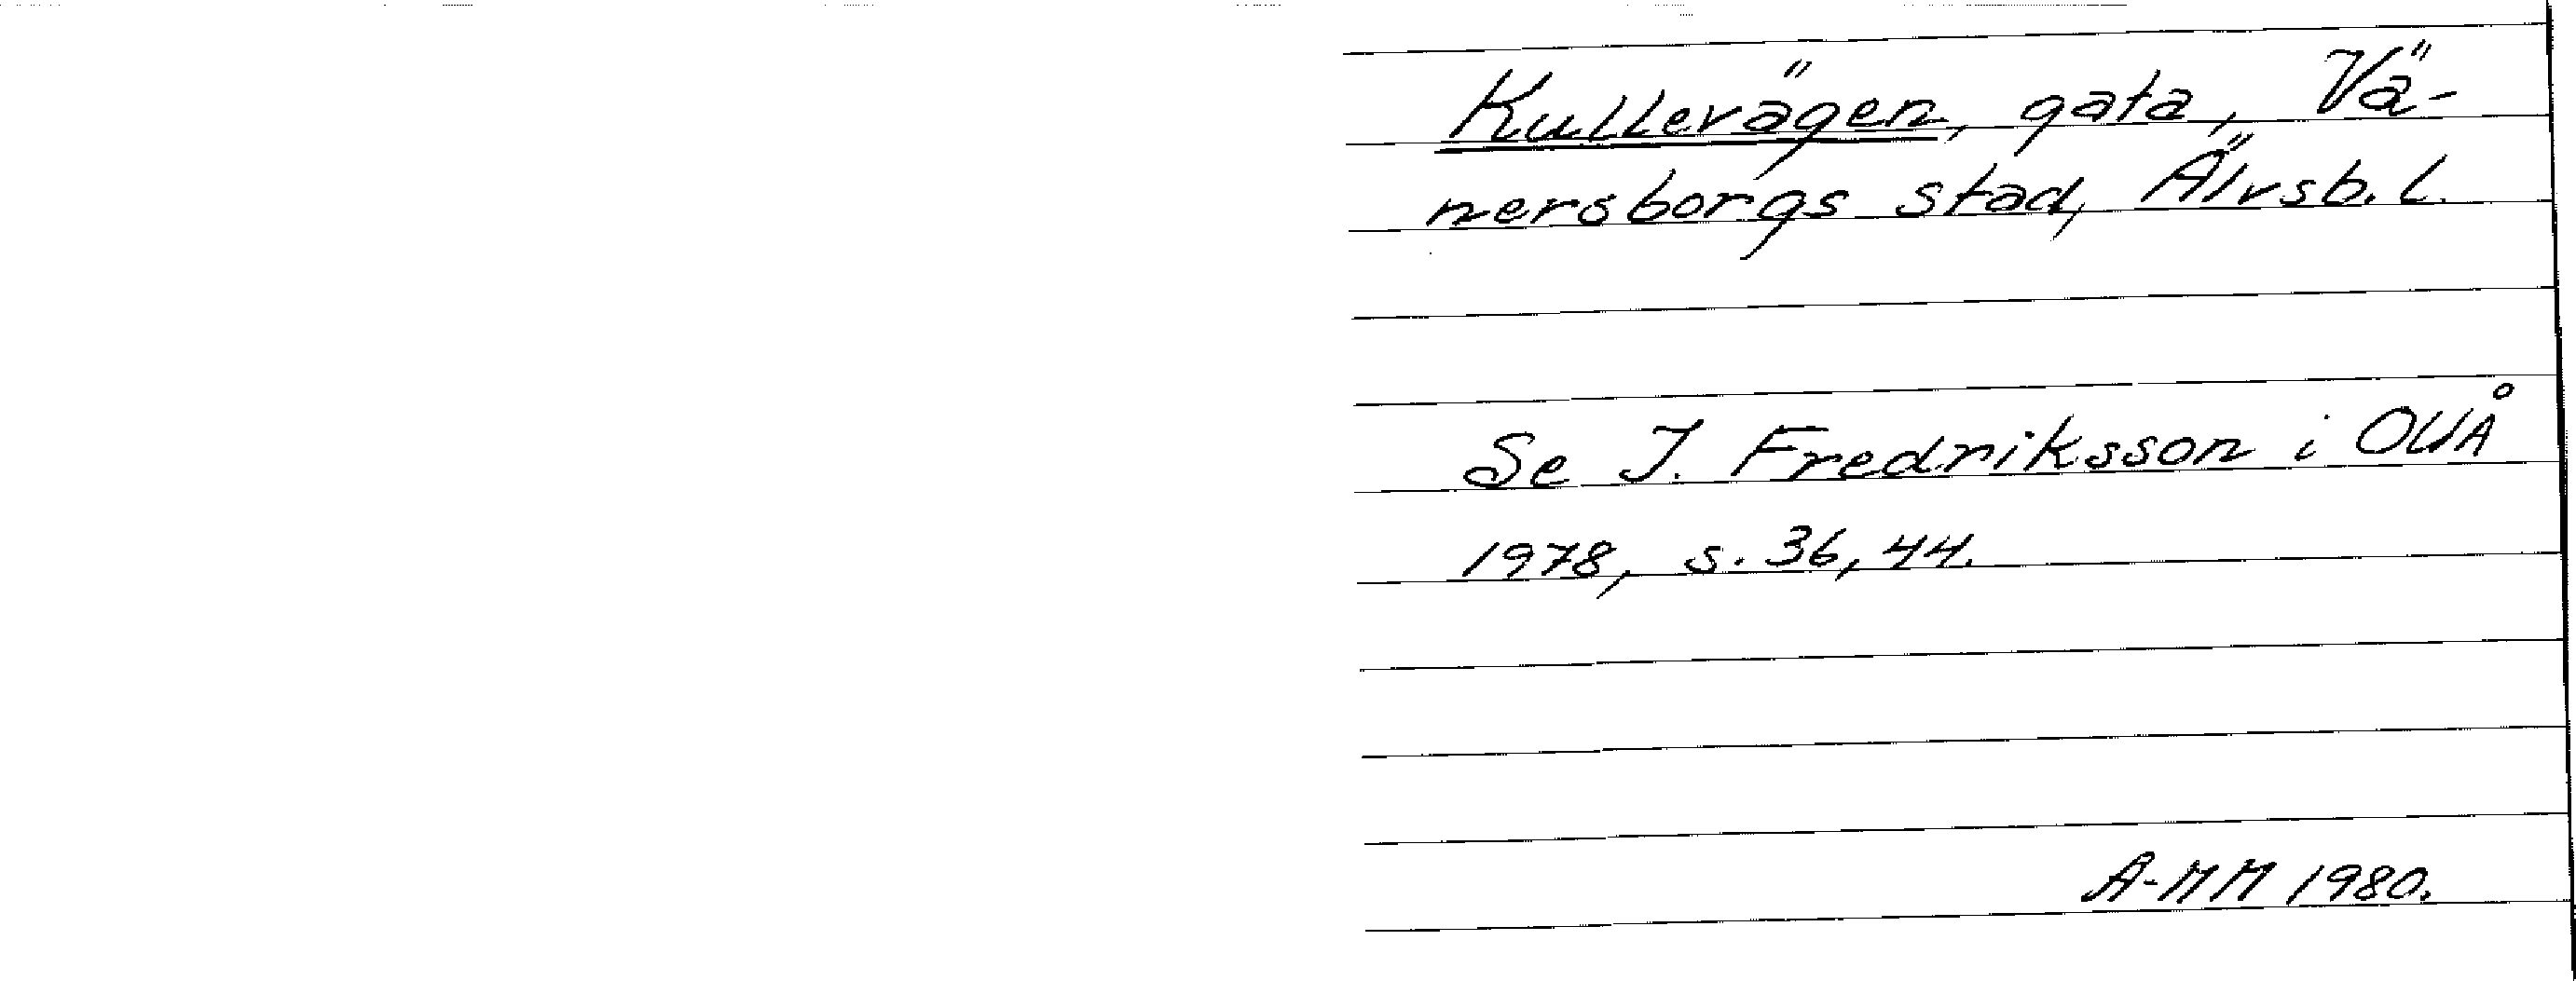 Kullevägen, gata, Vä-
nersborgs stad, Älvsb. l.
Se I. Fredriksson i OUÅ
1978, s. 36, 44.
A-MM 1980.